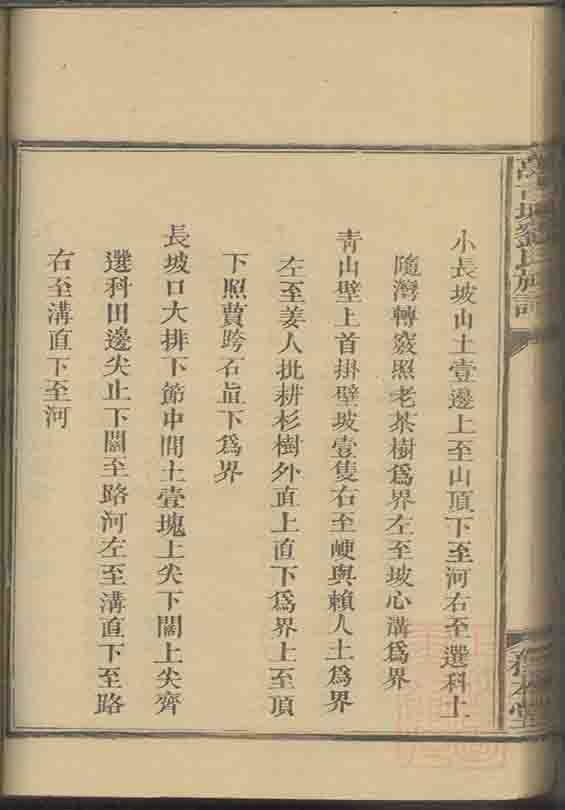 小長坡山土壹邊上至山頂下至河右至選科土
隨灣轉竅照老茶樹爲界左至坡心溝爲界
靑山壁上首掛壁坡壹隻右至峺與賴人土爲界
左至姜人批耕杉樹外直上直下爲界上至頂
下照蕡跨石眞下爲界
長坡口大排下節中間土壹瑰上尖下闊上尖齊
選科田邊尖止下闊至路河左至溝直下至路
右至溝直下至河
劉氏族譜